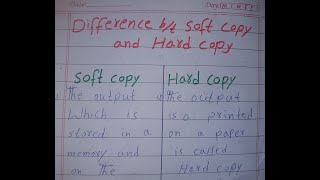 Difference b/t Soft copy
and Hard copy
Soft copy
The output
which is
stored in a
memory and
on the
Hard copy
The output
is a printed
on a paper
is called
Hard copy